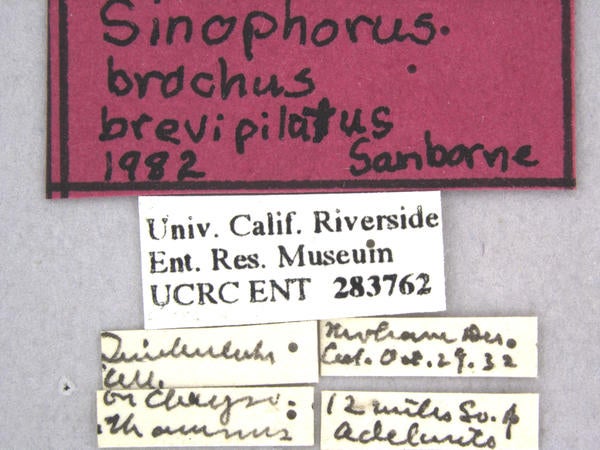 Sinophorus.
brochus
brevipilatus
1982 Sanborne
Univ. Calif. Riverside
Ent. Res. Museum
UCRC ENT 283762
Timberlake
Coll.
on Chryso-
thamnus
Mohave Des.
Cal. Oct. 29. 32
12 miles So. of
Adelanto